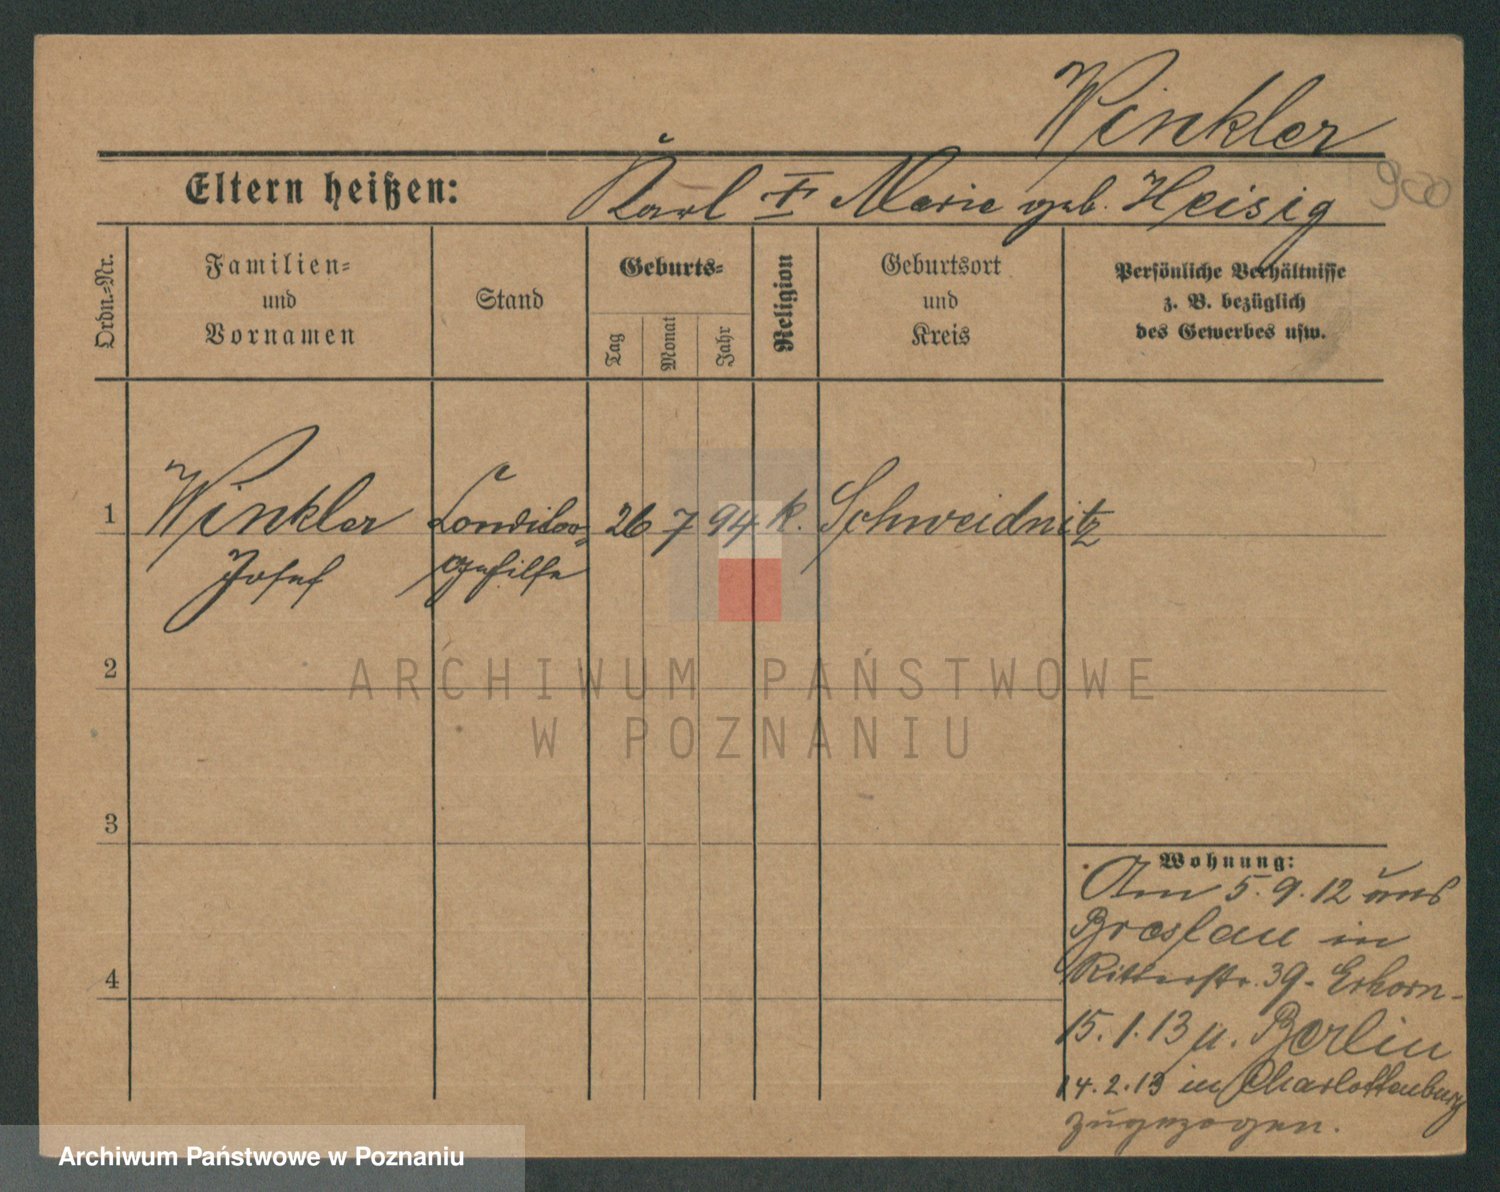 Winkler
900
Eltern heißen: Karl † Marie geb. Heisig
Ordn.=Nr.
Familien=
und
Vornamen
Stand
Geburts=
Tag
Monat
Jahr
Religion
Geburtsort
und
Kreis
Persönliche Verhältnisse
z. B. bezüglich
des Gewerbes usw.
1 Winkler Conditor= 26 7 94 k. Schweidnitz
Josef gehilfe
2
ARCHIWUM PAŃSTWOWE
W POZNANIU
3
4
Wohnung:
Am 5.9.12 aus
Breslau in
Ritterstr. 39 -
15.1.13 n. Berlin
14.2.13 in Charlottenburg
zugezogen.
Archiwum Państwowe w Poznaniu